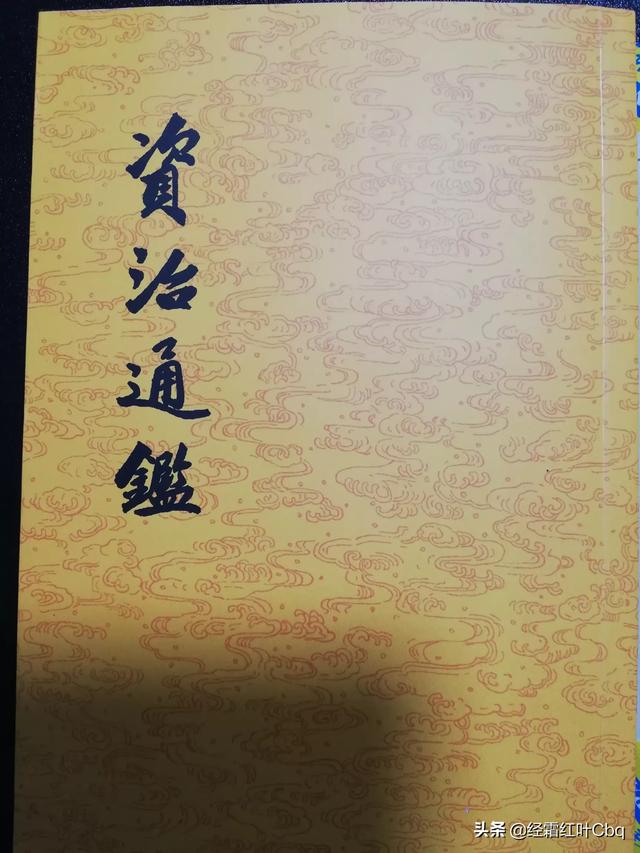 資治通鑑
头条 @经霜红叶Cbq